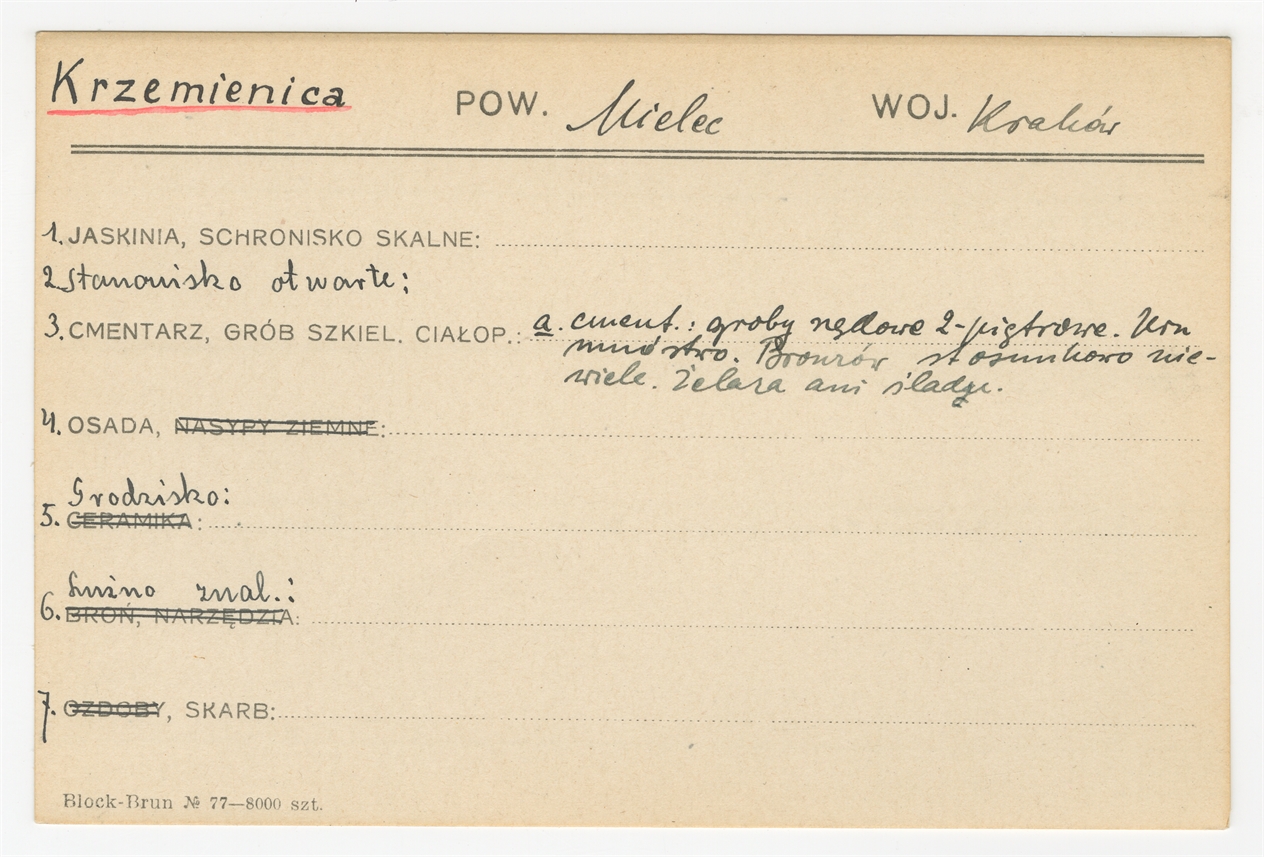 Krzemienica POW. Mielec WOJ. Kraków
1. JASKINIA, SCHRONISKO SKALNE:
2 Stanowisko otwarte:
3. CMENTARZ, GRÓB SZKIEL. CIAŁOP.: a. cment.: groby rzędowe 2-piętrowe. Urn
mnóstwo. Bronzów stosunkowo nie-
wiele. Żelaza ani śladu.
4. OSADA, NASYPY ZIEMNE:
Grodzisko:
5. CERAMIKA:
Luźno znal.:
6. BROŃ, NARZĘDZIA:
7. OZDOBY, SKARB:
Block-Brun № 77—8000 szt.